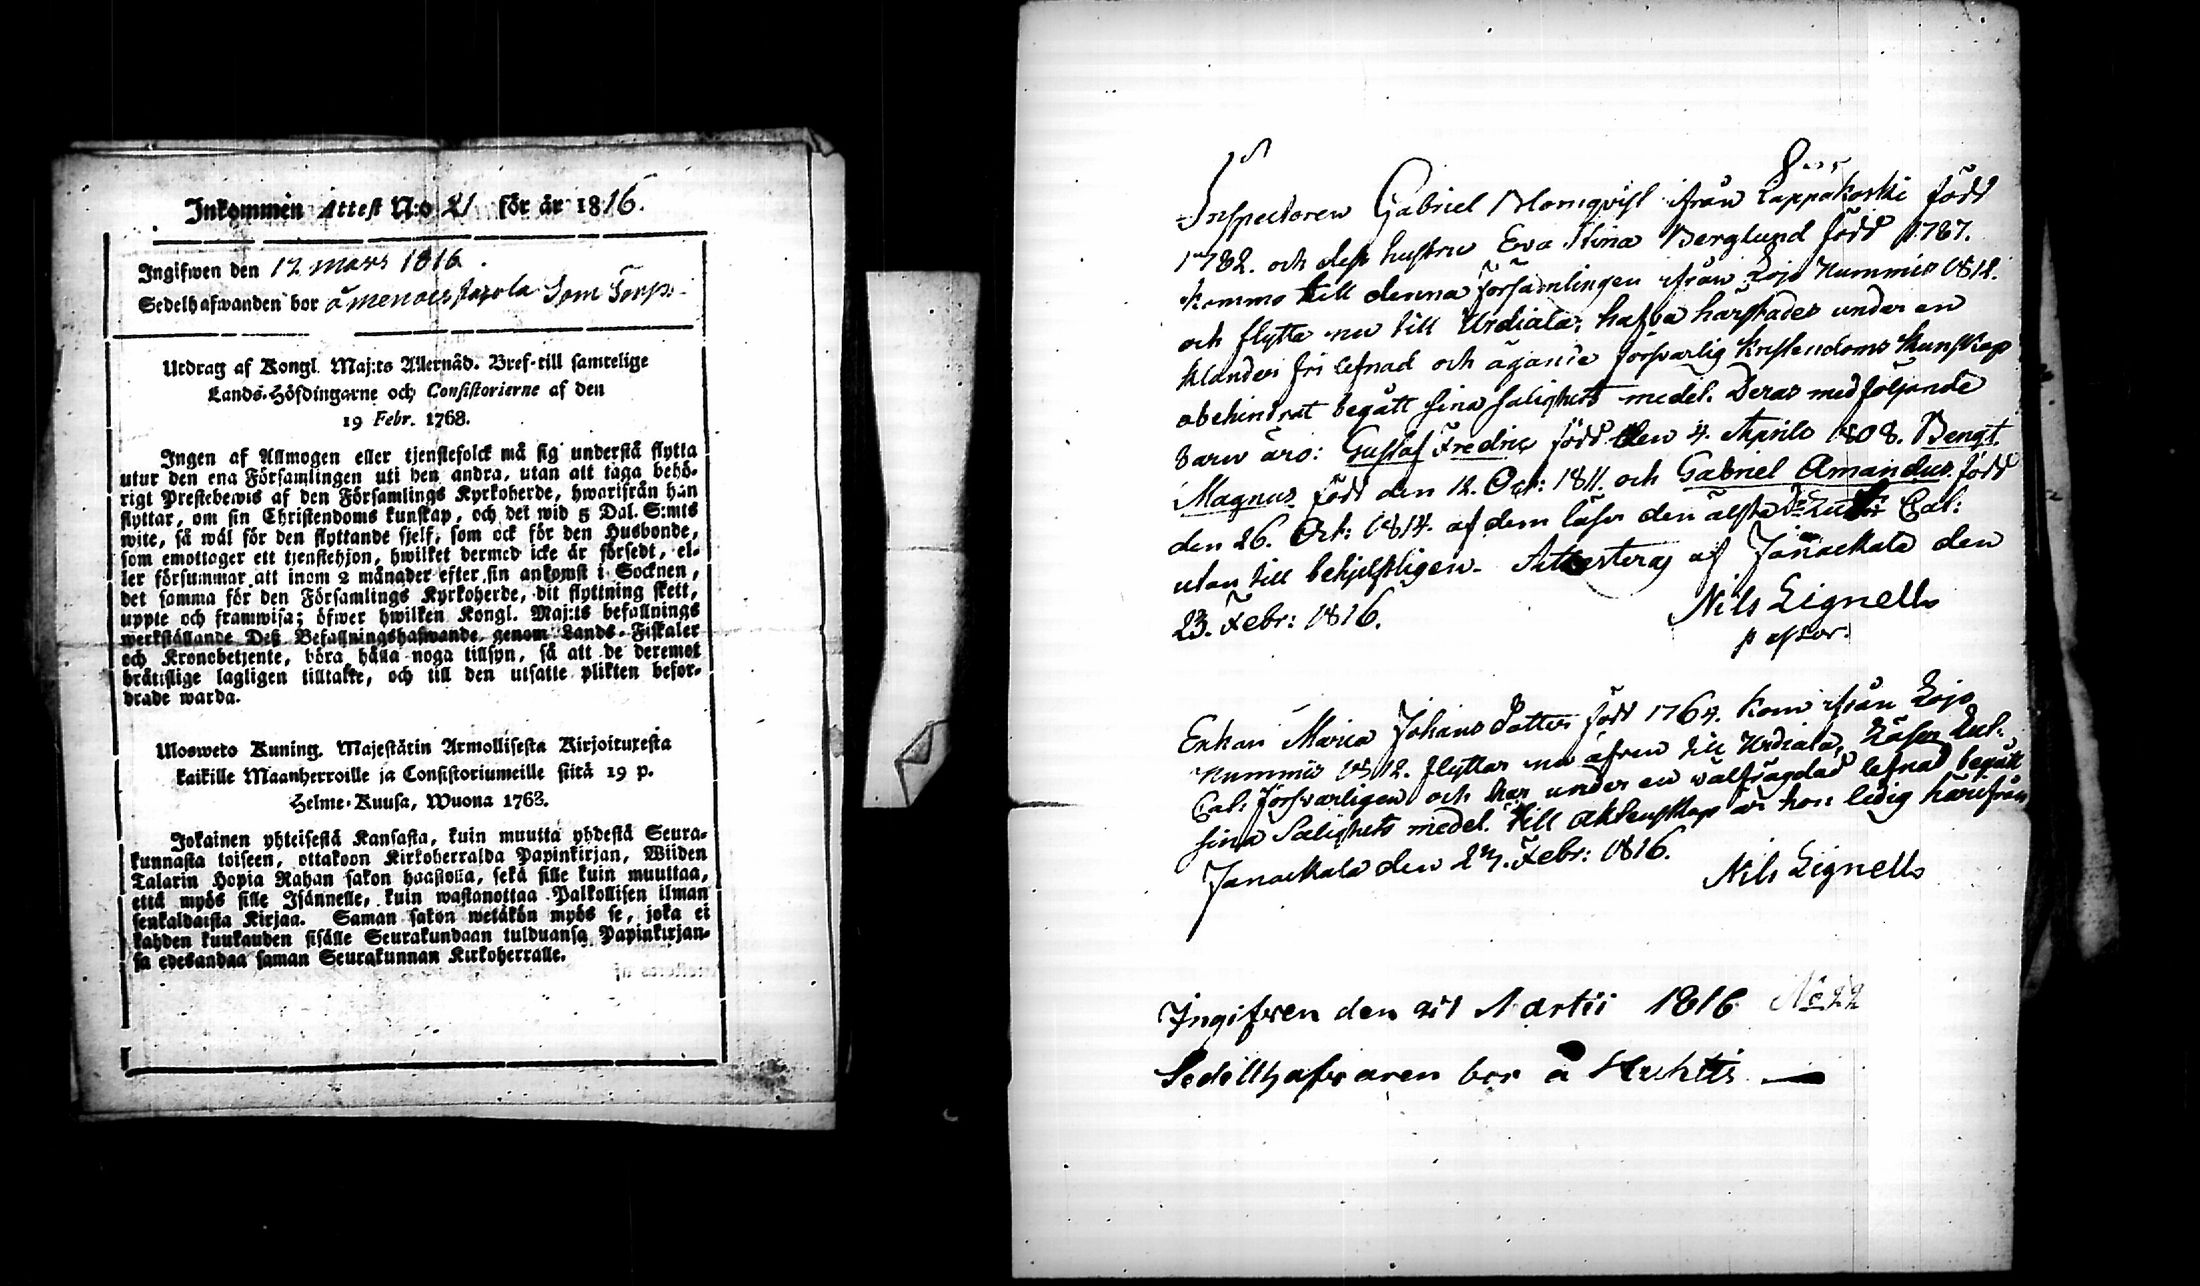 Inkommen Attest N:o 21 för år 1816.
Ingifwen den 12 mars 1816.
Sedelhafwanden bor å Menois som Torp
Utdrag af Kongl. Maj:ts Allernåd. Bref till samtelige
Lands-Höfdingarne och Consistorierne af den
19 Febr. 1768.
Ingen af Allmogen eller tjenstefolck må sig understå flytta
utur den ena Församlingen uti den andra, utan att taga behö-
rigt Prestebewis af den Församlings Kyrkoherde, hwarifrån han
flyttar, om sin Christendoms kunskap, och det wid 5 Dal. S:mts
wite, så wäl för den flyttande sjelf, som ock för den Husbonde,
som emottager ett tjenstehjon, hwilket dermed icke är försedt, el-
ler försummar att inom 2 månader efter sin ankomst i Socknen,
det samma för den Församlings Kyrkoherde, dit flyttning skett,
uppte och framwisa; öfwer hwilken Kongl. Maj:ts befallnings
werkställande Deß Befallningshafwande genom Lands-Fiskaler
och Kronobetjente, böra hålla noga tillsyn, så att de deremot
brätslige lagligen tilltalte, och till den utsatte plikten befor-
drade warda.
Ulosweto Kuning. Majestätin Armollisesta Kirjoituxesta
kaikille Maanherroille ja Consistoriumeille siitä 19 p.
Helme-Kuusa, Wuona 1768.
Jokainen yhteisestä Kansasta, kuin muutta yhdestä Seura-
kunnasta toiseen, ottakoon Kirkoherralda Papinkirjan, Wiiden
Talarin Hopia Rahan sakon haastolla, sekä sille kuin muuttaa,
että myös sille Isännelle, kuin wastanottaa Palkollisen ilman
senkaldaista Kirjaa. Saman sakon wetäkön myös se, joka ei
kahden kuukauden sisälle Seurakundaan tulduansa Papinkirjan-
sa edesandaa saman Seurakunnan Kirkoherralle.
Inspectoren Gabriel Blomqvist ifrån Lappakoski född
1782. och dess hustru Eva Stina Berglund född 1787.
kommo till denna församlingen ifrån Lojo Nummis 1812.
och flytta nu till Urdiala; hafva härstädes under en
klanderfri lefnad och ägande försvarlig kristendoms kunskap
obehindrat begått sina salighets medel. Deras medföljande
barn äro: Gustaf Fredric född den 4. Aprils 1808. Bengt
Magnus född den 12. Oct: 1811. och Gabriel Amandus född
den 26. Oct: 1814. af dem läser den älsta Cal:
utan till behjelpligen. Attesteras af Janackala den
23. Febr: 1816.
Nils Lignell
pastor.
Enkan Maria Johans dotter född 1764. kom ifrån Lojo
Nummis 1812. flyttar nu äfven till Urdiala, Läser Lut:
Cat: försvarligen och har under en välfrägdad lefnad begått
sina Salighets medel. till äktenskap är hon ledig härifrån
Janackala den 27. Febr: 1816.
Nils Lignell
Ingifven den 21 Martii 1816 No 22
Sedellhafvaren bor å Huhtis